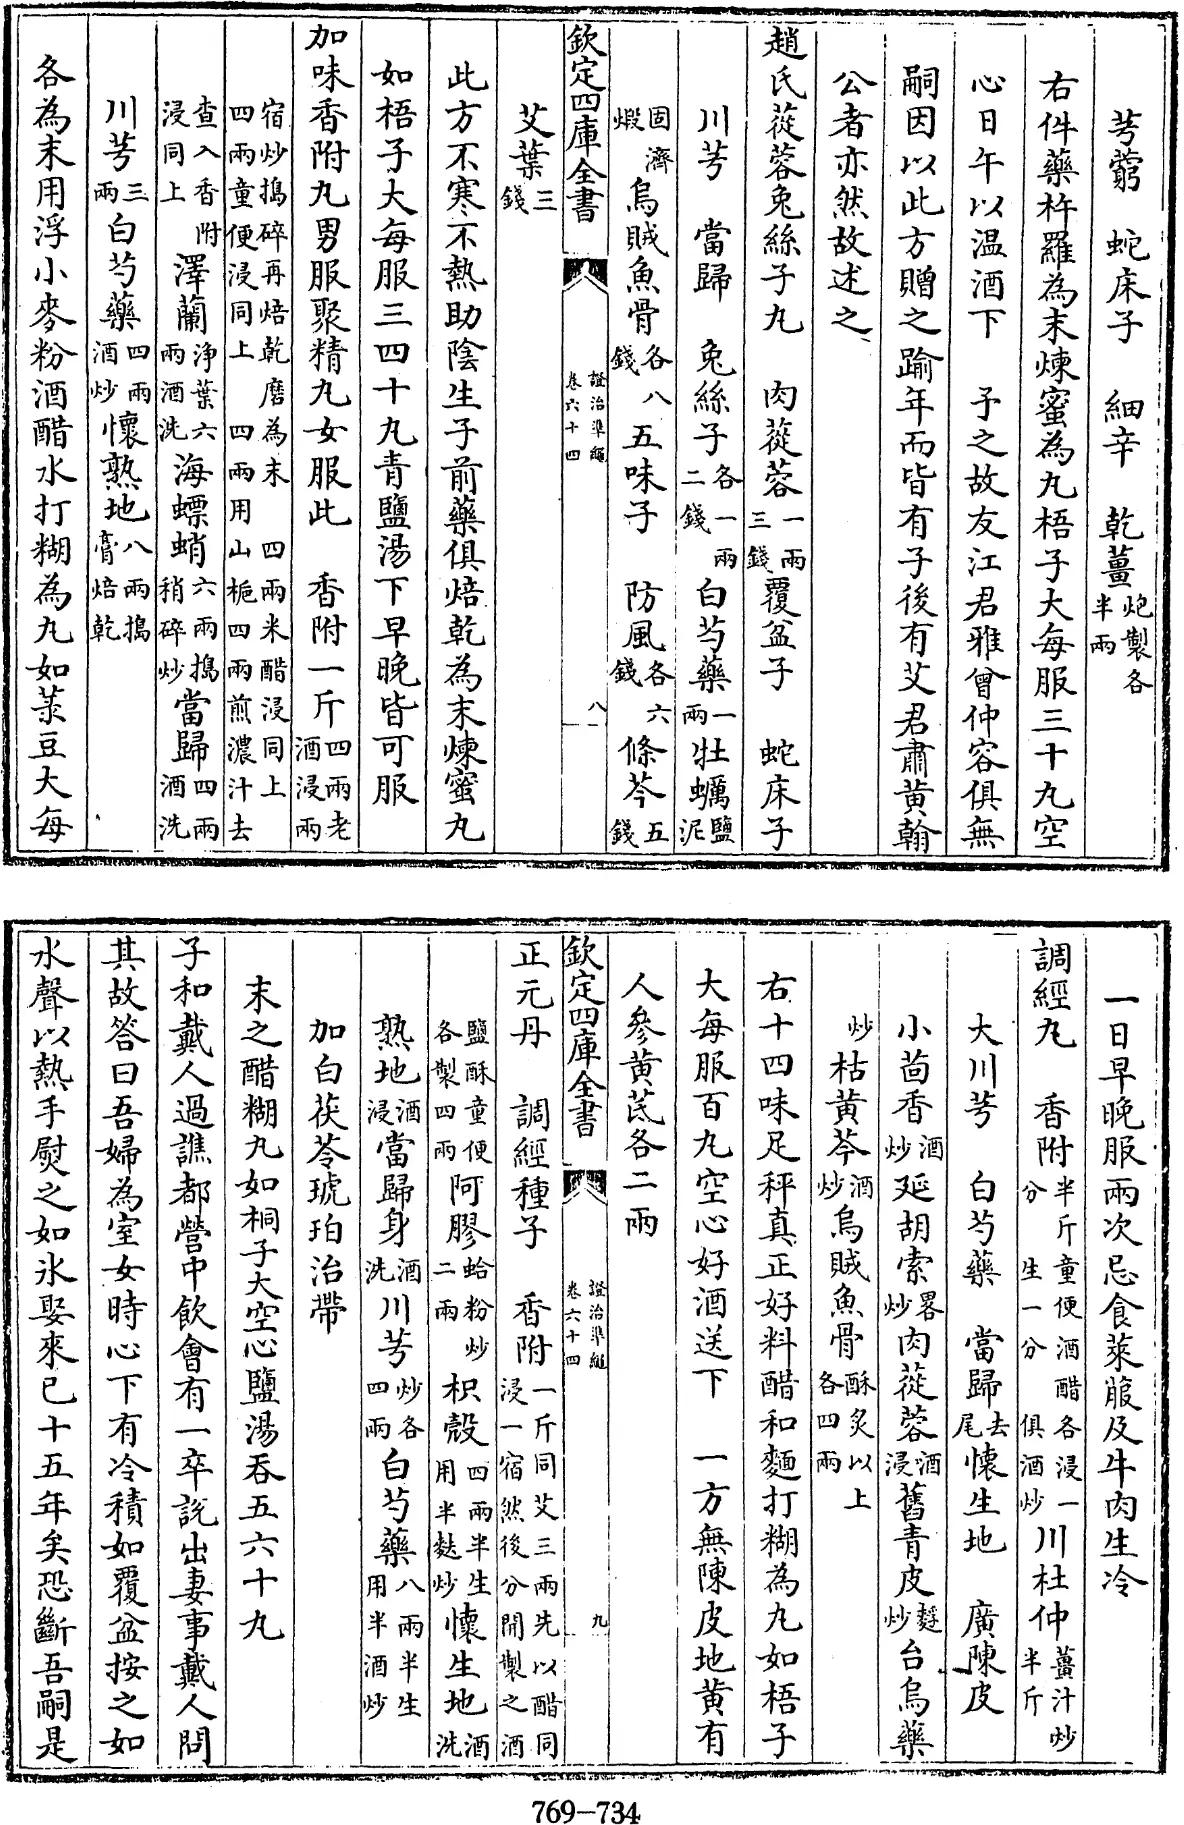 芎藭 蛇床子 細辛 乾薑炮製各半兩
右件藥杵羅為末煉蜜為丸梧子大每服三十丸空
心日午以温酒下 子之故友江君雅曾仲容俱無
嗣因以此方贈之踰年而皆有子後有艾君肅黄翰
公者亦然故述之
趙氏蓯蓉兔絲子丸 肉蓯蓉一兩三錢覆盆子 蛇床子
川芎 當歸 兔絲子各一兩二錢白芍藥一兩牡蠣鹽泥
固濟煆烏賊魚骨各八錢五味子 防風各六錢條芩五錢
欽定四庫全書 證治準繩 卷六十四 八
艾葉三錢
此方不寒不熱助陰生子前藥俱焙乾為末煉蜜丸
如梧子大每服三四十丸青鹽湯下早晚皆可服
加味香附丸男服聚精丸女服此 香附一斤四兩老酒浸兩
宿炒搗碎再焙乾磨為末 四兩米醋浸同上四兩童便浸同上 四兩用山梔四兩煎濃汁去
查入香附浸同上澤蘭淨葉六兩酒洗海螵蛸六兩搗稍碎炒當歸四兩酒洗
川芎三兩白芍藥四兩酒炒懷熟地八兩搗膏焙乾
各為末用浮小麥粉酒醋水打糊為丸如菉豆大每
一日早晚服兩次忌食萊菔及牛肉生冷
調經丸 香附半斤童便酒醋各浸一分生一分俱酒炒川杜仲薑汁炒半斤
大川芎 白芍藥 當歸去尾懷生地 廣陳皮
小茴香酒炒延胡索畧炒肉蓯蓉酒浸舊青皮麩炒台烏藥
炒枯黄芩酒炒烏賊魚骨酥炙以上各四兩
右十四味足秤真正好料醋和麵打糊為丸如梧子
大每服百丸空心好酒送下 一方無陳皮地黄有
人參黄芪各二兩
欽定四庫全書 證治準繩 卷六十四 九
正元丹 調經種子 香附一斤同艾三兩先以醋同浸一宿然後分開製之酒
鹽酥童便各製四兩阿膠蛤粉炒二兩枳殼四兩半生用半麩炒懷生地酒洗
熟地酒浸當歸身酒洗川芎炒各四兩白芍藥八兩半生用半酒炒
加白茯苓琥珀治帶
末之醋糊丸如桐子大空心鹽湯吞五六十丸
子和戴人過譙都營中飲會有一卒說出妻事戴人問
其故答曰吾婦為室女時心下有冷積如覆盆按之如
水聲以熱手熨之如氷娶來已十五年矣恐斷吾嗣是
769-734